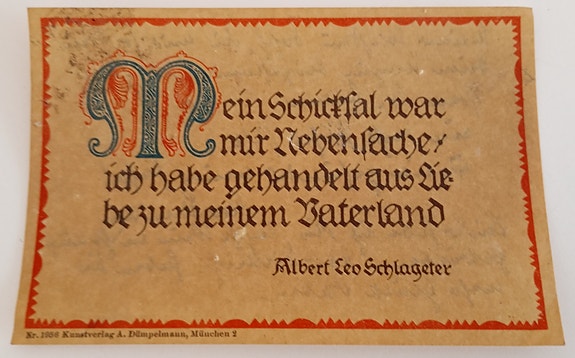 Mein Schicksal war
mir Nebensache,
ich habe gehandelt aus Lie-
be zu meinem Vaterland
Albert Leo Schlageter
Nr. 1936 Kunstverlag A. Dümpelmann, München 2